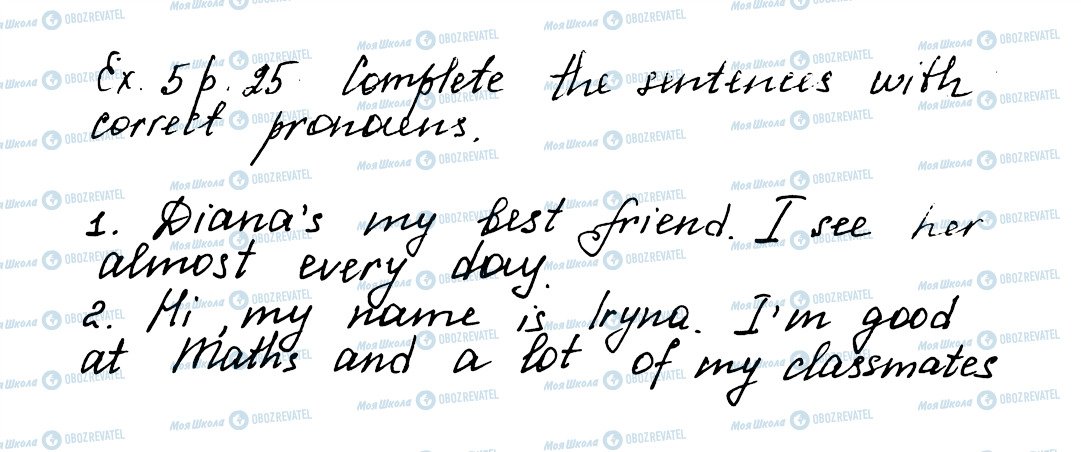 Ex. 5 p. 25 Complete the sentences with
correct pronouns.
1. Diana's my best friend. I see her
almost every day.
2. Hi, my name is Iryna. I'm good
at Maths and a lot of my classmates